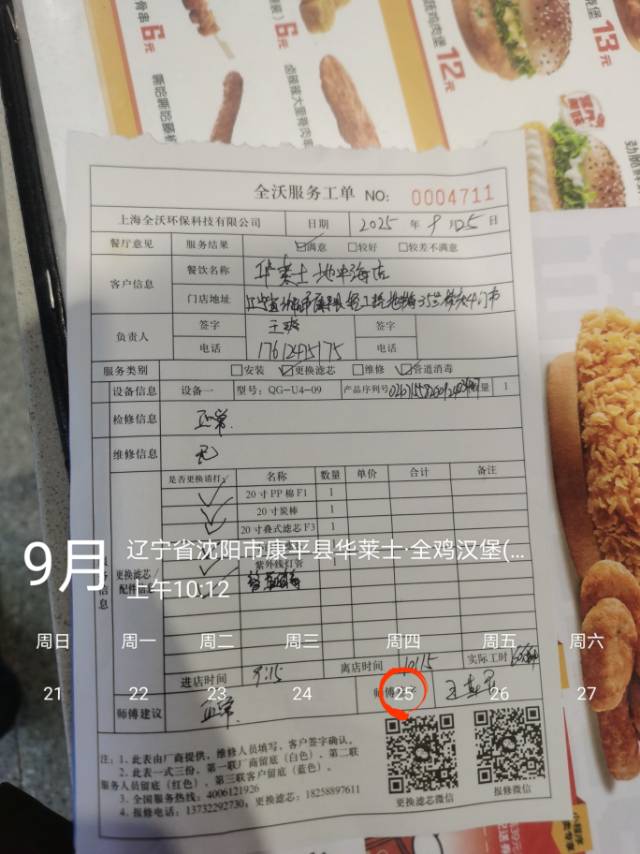 6元
6元
12元
13元
全沃服务工单 NO: 0004711
上海全沃环保科技有限公司 日期 2025年 9月25日
餐厅意见 服务结果 ☑满意 □较好 □较差不满意
客户信息 餐饮名称 华莱士地中海店
门店地址
负责人 签字 签字
电话 17612495175 电话
服务类别 □安装 ☑更换滤芯 □维修 ☑管道消毒
设备信息 设备一 型号: QG-U4-09 产品序列号 数量 1
检修信息 正常
维修信息 无
是否更换请打√ 名称 数量 单价 合计 备注
✓ 20寸PP棉F1 1
✓ 20寸炭棒 1
✓ 20寸叠式滤芯F3 1
紫外线灯管
更换滤芯/
配件信息
9月
辽宁省沈阳市康平县华莱士·全鸡汉堡(...
上午10:12
周日 周一 周二 周三 周四 周五 周六
21 22 23 24 25 26 27
进店时间 9:15 离店时间 10:15 实际工时
师傅建议 正常
注: 1. 此表由厂商提供、维修人员填写、客户签字确认。
2. 此表一式三份、第一联厂商留底(白色)、第二联
服务人员留底(红色)、第三联客户留底(蓝色)。
3. 全国服务热线: 4006121926
4. 报修电话: 13732292730、更换滤芯: 18258897611
更换滤芯微信 报修微信